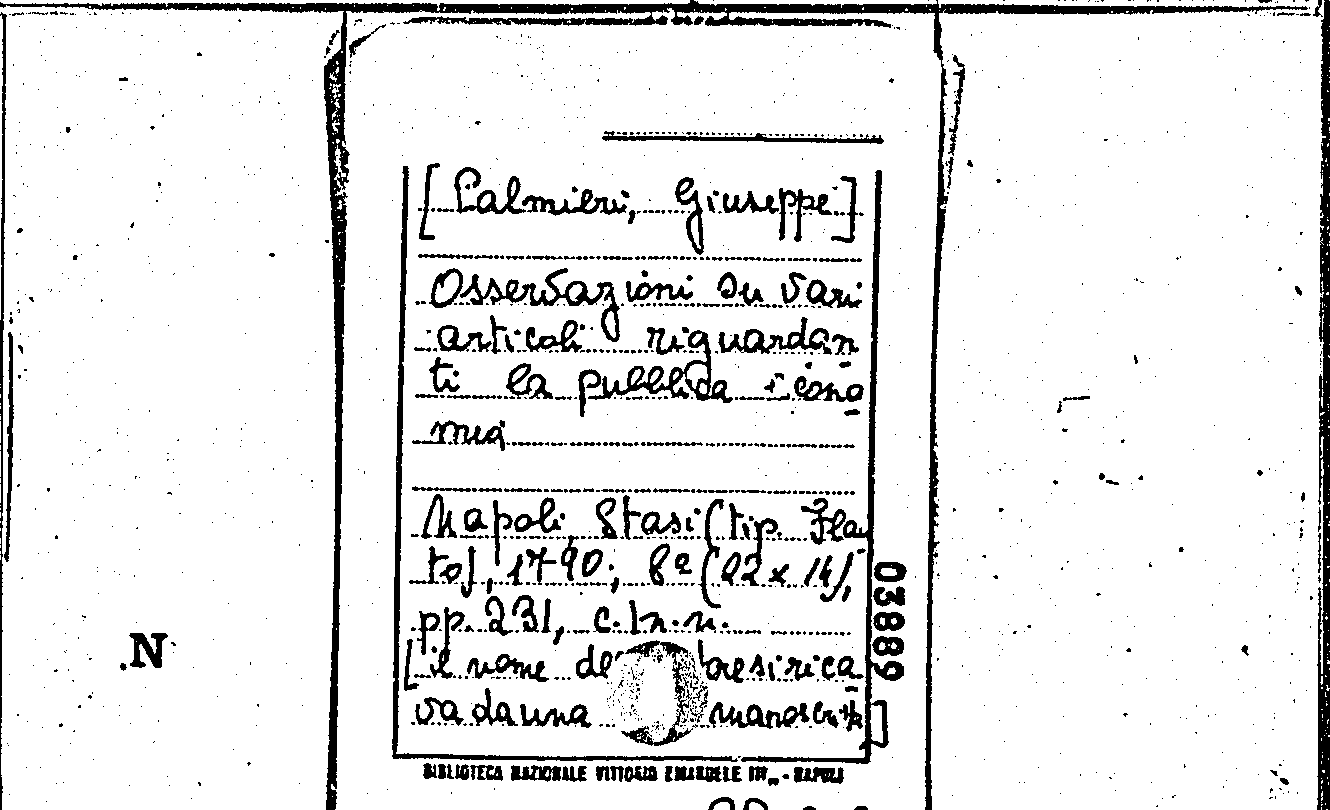 [Palmieri, Giuseppe]
Osservazioni su vari
articoli riguardan
ti la pubblica econo
mia
Napoli, Stasi (tip. Fla
to), 1790; 8º (22 x 14),
pp. 231, c. 1 n.n.
[il nome si rica
va da una manoscritta]
03889
N
BIBLIOTECA NAZIONALE VITTORIO EMANUELE III - NAPOLI